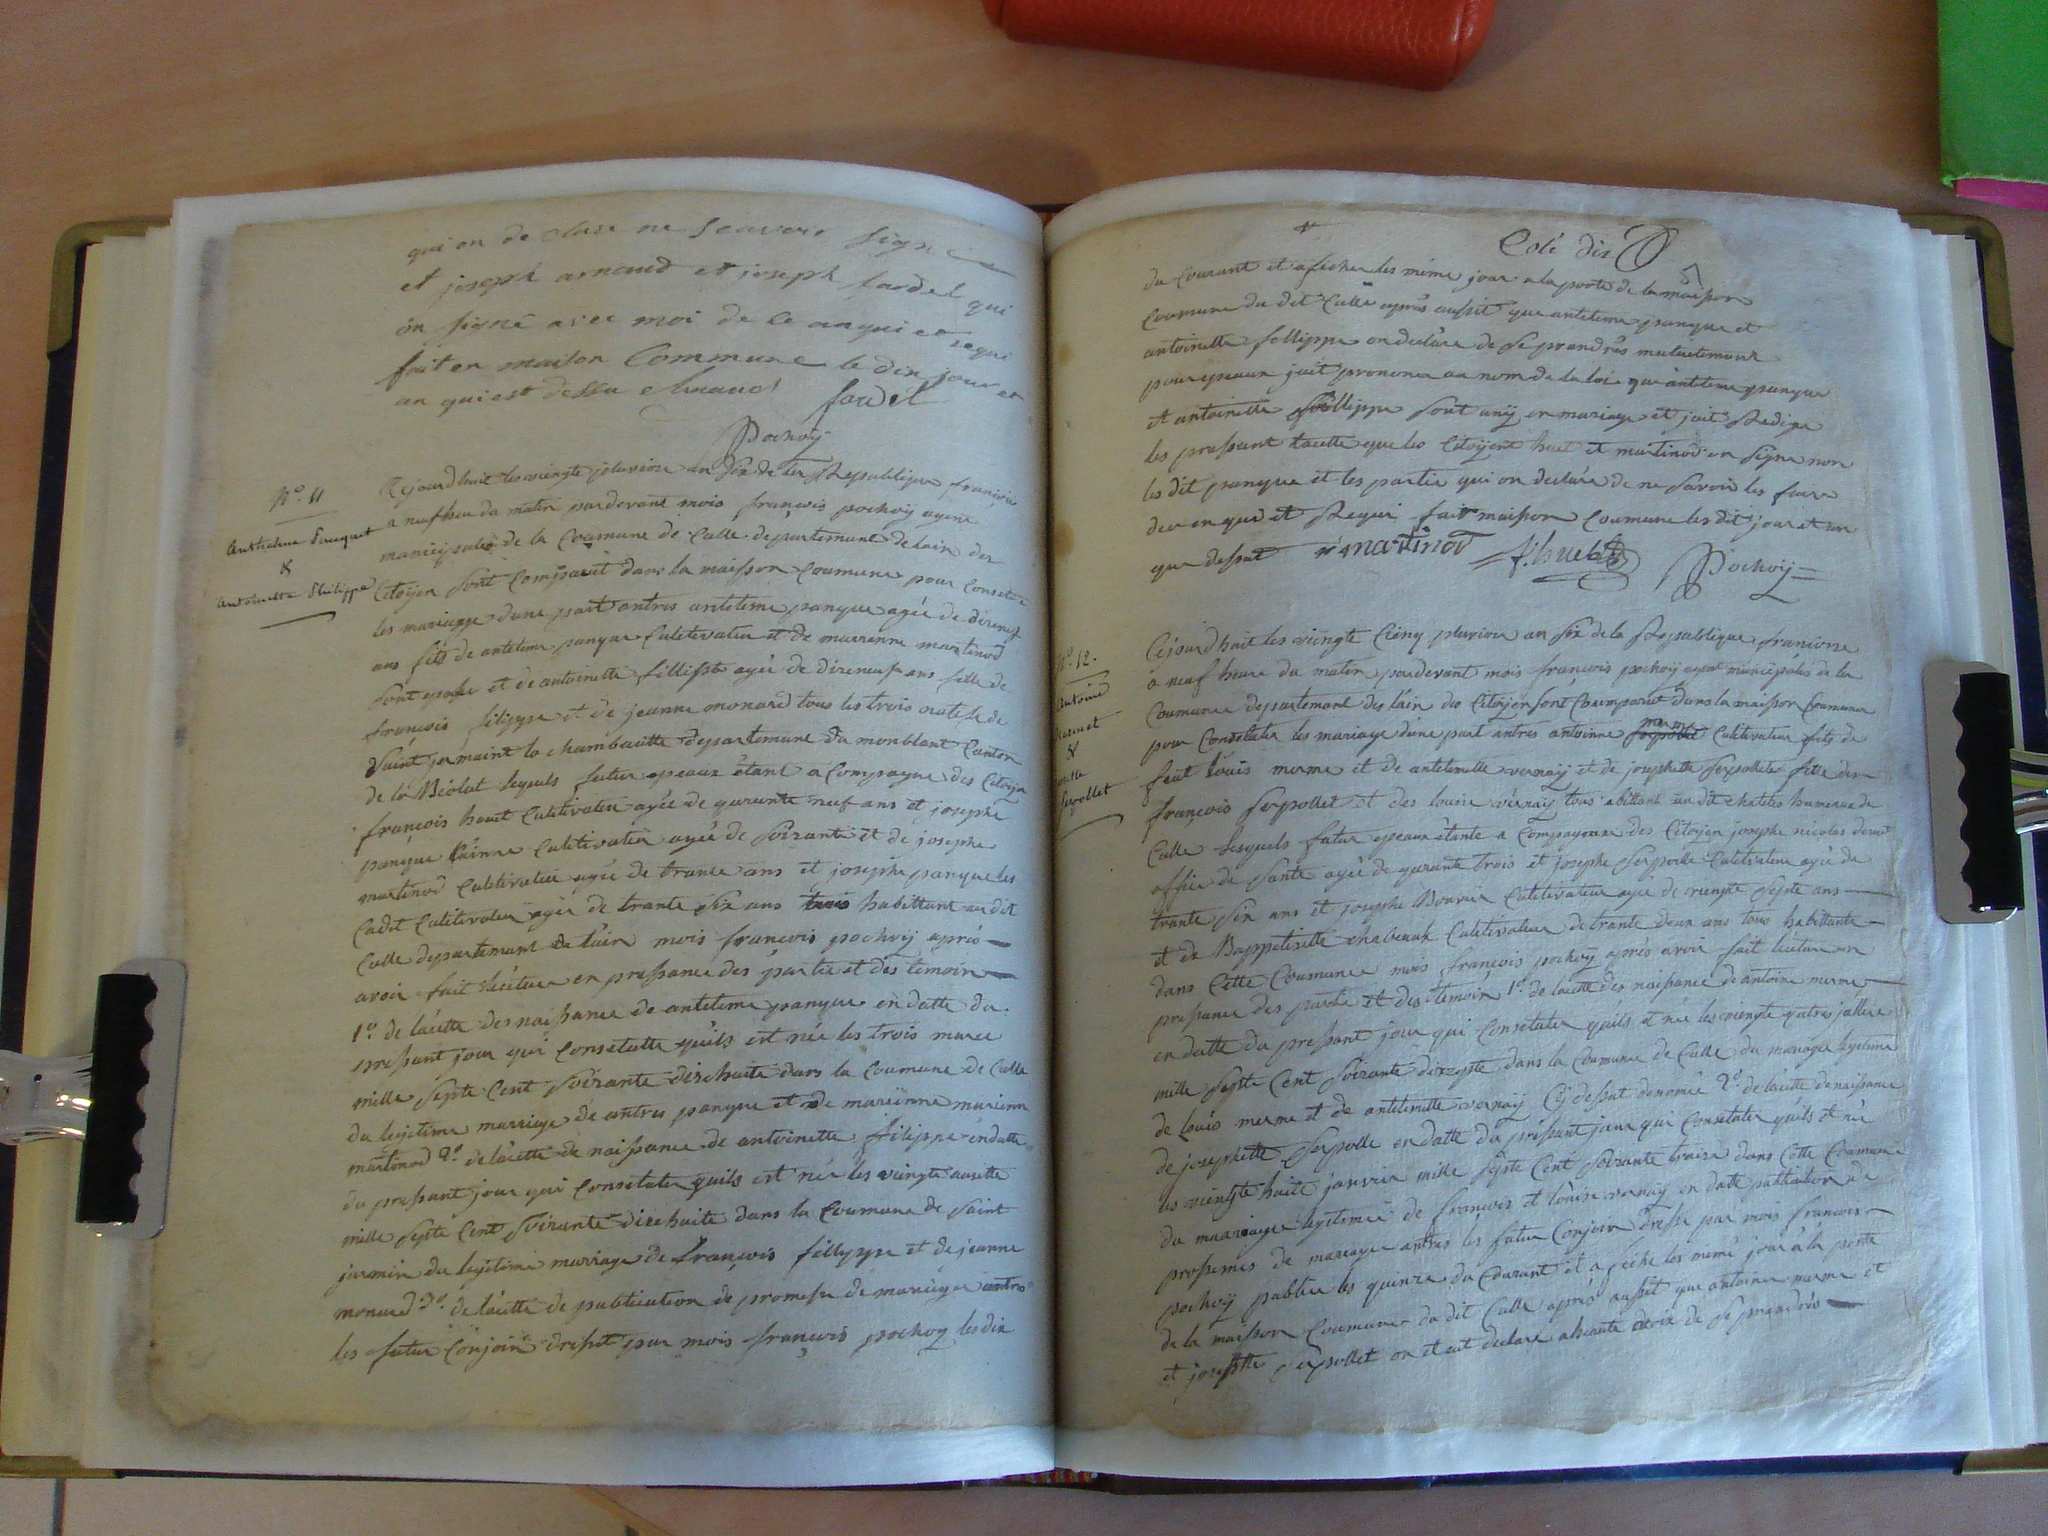 qui on de clare ne scavoir signe
et joseph arnaud et joseph fardel qui
on signé avec moi de ce anqui et requi
fait en maison Commune le dix jour et
an qui est dessu Arnaud fardel
Pochoÿ
N.º 11
Anthelme Panquet
&
Antoinette Philippe
Cejourd huit les viengte pluviose an six de la Republique francoise
a neuf heu du matin pardevant mois françois pochoy agent
manicipales de la Coumune de Culle departemant de lain des
Citoÿen sont Comparut dans la maisson Coumune pour Constetée
les mariagge dune part antres antelme panque agée de dixneuf
ans fils de antelme panque Culetivateu et de marianne martinod
sont epouse et de antoinette fillippe agée de dixneuf ans fille de
françois filippe et de jeanne monard tous les trois natife de
Saint jermaint la chambautte departemune du monblant Canton
de la Biolat lequels futur epeaux étant a Compagne des Citoÿen
françois huet Culetivateu agée de quarante neuf ans et josephe
panque lainne Culetivateu agée de soixante et de josephe
martinod Culetivateu agée de trante ans et josephe panque les
Cadet Culetivateu agée de trante six ans trois habittant au dit
Culle departemant de lain mois francois pochoÿ aprés
avoir fait lécture en pressance des partie et des temoin
1º. de lácette des naissance de antelme panque en datte du
pressant jour qui Consetatte quils est née les trois marce
mille septe Cent soixante dixhuite dans la Coumune de Culle
du legitime marriage de antres panque et de marianne marienne
martinod 2º. de lácette de naissance de antoinette filippe en datte
du pressant jour qui Consetate quils est née les viengte auutte
mille septe Cent soixante dixehuite dans la Coumune de Saint
jarmin du legitime marriage de françois fillippe et de jeanne
monard 3º. de lácette de publication de promesse de mariage antre
les futur Conjoin dressé par mois françois pochoy les dix
Coté dix
du Courant et afichée les même jour a la porte de la maison
Coumune du dit Culle aprés aussit que antelme panque et
antoinette fellippe on declare de se prandrés mutuelemant
pour epeaux jait prononce au nom de la loi que antelme panque
et antoinette fillippe sont unÿ en mariage et jait Redige
les pressant lacette que les Citoÿent huet et martinod on signe non
les dit panque et les partie qui on declaré de ne savoir les faire
de ce enquit et Requi fait maisson Coumune les dit jour et an
que dessut martinod f. huet Pochoÿ
Nº. 12.
Antoine
&
Serpollet
Céjourdhuit les viengte Cienq pluviose an six de la Republique francoise
a neuf heure du matin pardevant mois françois pochoÿ agent municipales de la
Coumune departemant des lain des Citoÿen sont Comparut dans la maisson Coumune
pour Constater les mariage dune part antres antoine merme Culetivateu fils de
feut louis merme et de antelmette vernaÿ et de josephette serpollette fille des
françois Serpollet et des louise vérnaÿ tous abittant au dit hameau de
Culle lesquels futur epeaux étante a Compagnee des Citoÿen josephe nicolas
offiée de sante agée de quarante trois et josephe serpolle Culetivateu agée de
trante six ans et josephe Bouvier Culetivateu agée de viengte septe ans
et de Bapptisette Culetivateu de trante deux ans tous habittante
dans Cette Coumune mois françois pochoÿ aprés avoir fait lecture en
pressance des partie et des temoin 1º. de lacette des naissance de antoine merme
en datte du pressant jour qui Consetater quils et née les viengte quatre jullies
mille septe Cent soixante dixsepte dans la Coumune de Culle du mariage legitime
de louis merme et de antelmette vernaÿ Cy dessut denomée 2º. de lacette de naissance
de josephette serpolle en datte du préssant jour qui Consetater quils et née
les viengte huite janvier mille septe Cent soixante traize dans Cette Coumune
du mariage legitimee de françois et louise vernaÿ en datte publication de
promesses de mariage antres les futur Conjoin dressé par mois françois
pochoÿ publier les quinze du Courant et afiché les meme jour á la porte
de la maisson Coumune du dit Culle aprés aussit que antoine merme et
et josephtte serpollet on declare de se prandrés